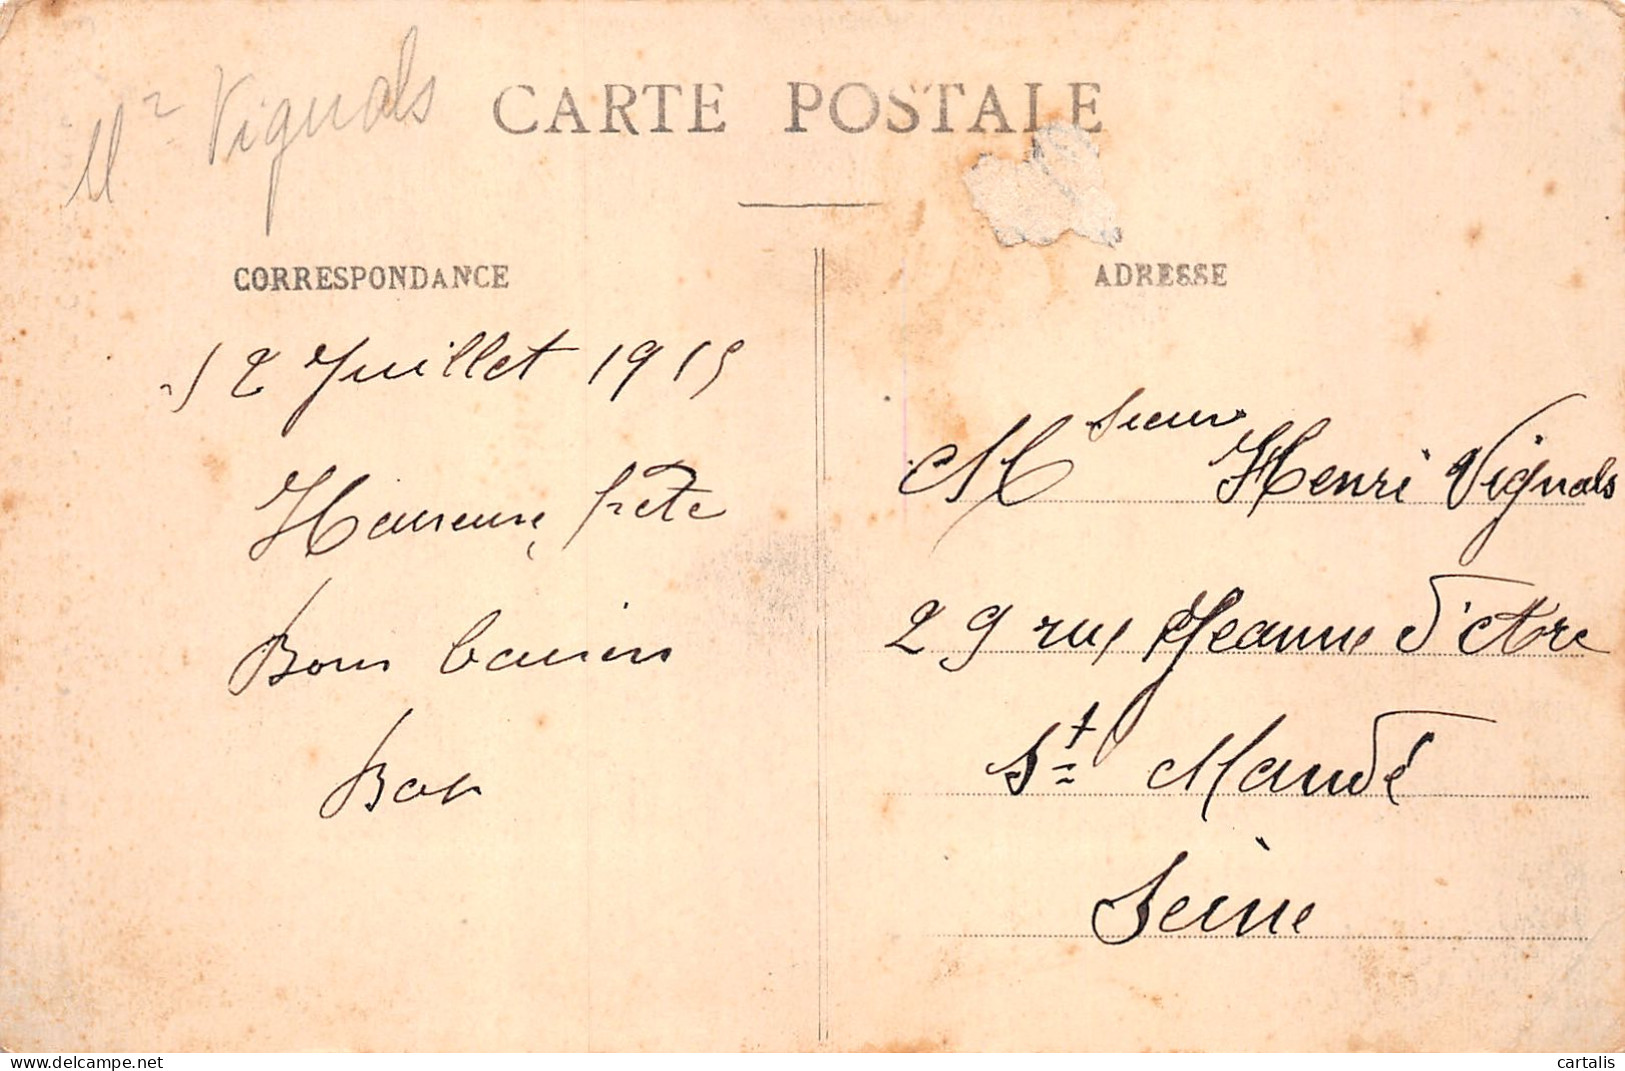 Mr Vignals
CARTE POSTALE
CORRESPONDANCE
ADRESSE
12 Juillet 1915
Heureuse fête
Bons baisers
Msieur Henri Vignals
29 rue Jeanne d'Arc
St Mandé
Seine
cartalis